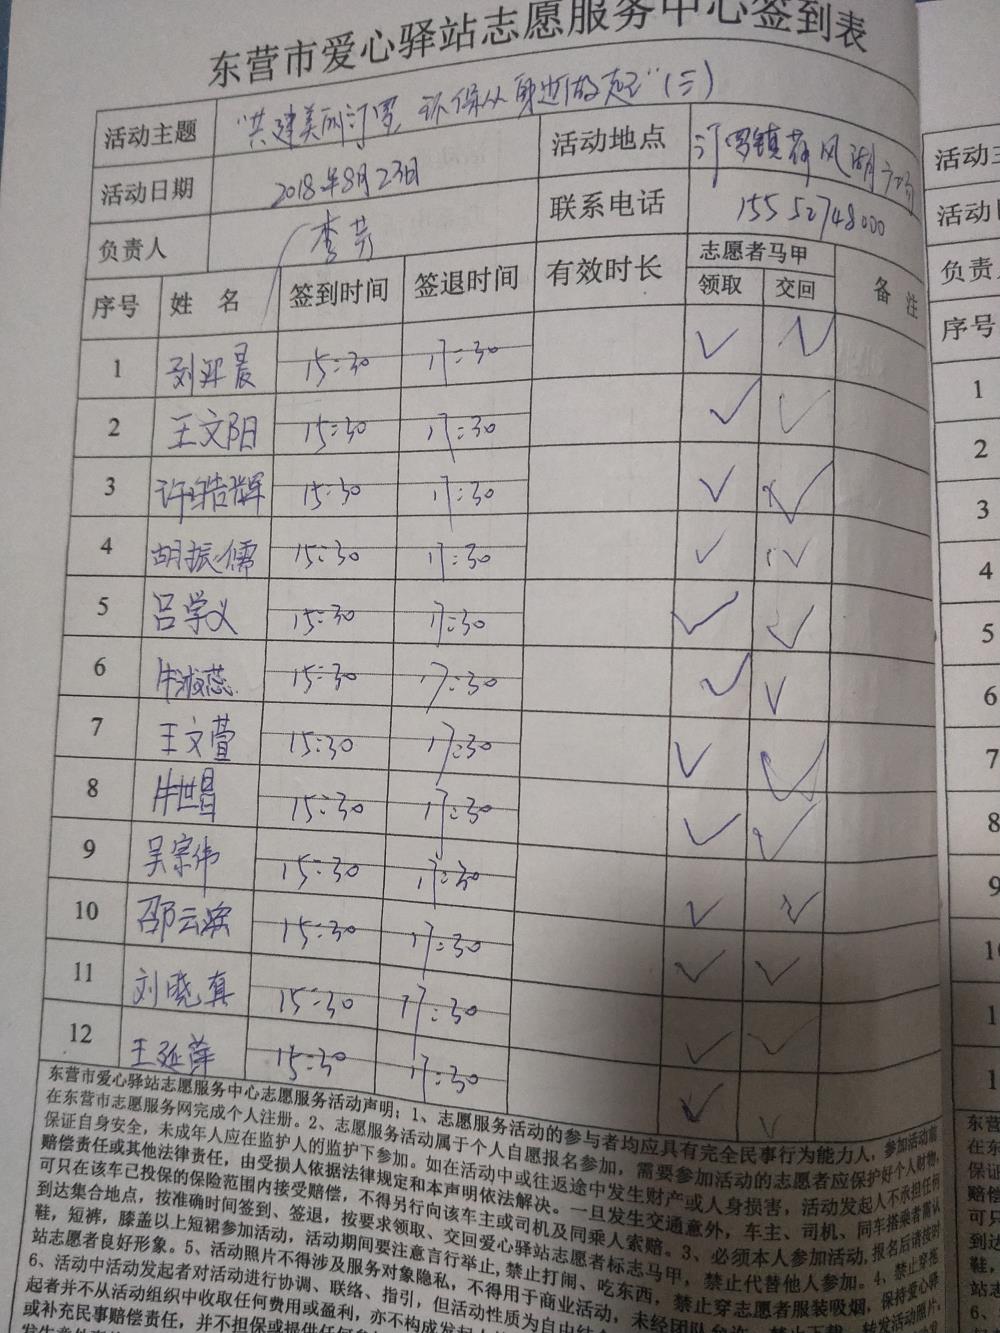 东营市爱心驿站志愿服务中心签到表
活动主题 "共建美丽汀罗 环保从身边做起"(三) 活动地点 汀罗镇荷风湖广场
活动日期 2018年8月23日 联系电话 15552748000
负责人 李芳
序号 姓 名 签到时间 签退时间 有效时长 志愿者马甲 领取 交回 备 注
1 刘羿晨 15:30 17:30 ✓ ✓
2 王文阳 15:30 17:30 ✓ ✓
3 许皓辉 15:30 17:30 ✓ ✓
4 胡振儒 15:30 17:30 ✓ ✓
5 吕学义 15:30 17:30 ✓ ✓
6 牛淑蕊 15:30 17:30 ✓ ✓
7 王文萱 15:30 17:30 ✓ ✓
8 牛世昌 15:30 17:30 ✓ ✓
9 吴宗伟 15:30 17:30 ✓ ✓
10 邵云 15:30 17:30 ✓ ✓
11 刘晓真 15:30 17:30 ✓ ✓
12 王延萍 15:30 17:30 ✓ ✓
东营市爱心驿站志愿服务中心志愿服务活动声明:1、志愿服务活动的参与者均应具有完全民事行为能力人,参加活动前
在东营市志愿服务网完成个人注册。2、志愿服务活动属于个人自愿报名参加,需要参加活动的志愿者应保护好个人财物,
保证自身安全,未成年人应在监护人的监护下参加。如在活动中或往返途中发生财产或人身损害,活动发起人不承担任何
赔偿责任或其他法律责任,由受损人依据法律规定和本声明依法解决。一旦发生交通意外,车主、司机、同车搭乘者需认
可只在该车已投保的保险范围内接受赔偿,不得另行向该车主或司机及同乘人索赔。3、必须本人参加活动,报名后请按时
到达集合地点,按准确时间签到、签退,按要求领取、交回爱心驿站志愿者标志马甲,禁止代替他人参加。4、禁止穿拖
鞋,短裤,膝盖以上短裙参加活动,活动期间要注意言行举止,禁止打闹、吃东西,禁止穿志愿者服装吸烟,保持爱心驿
站志愿者良好形象。5、活动照片不得涉及服务对象隐私,不得用于商业活动,未经团队允许,禁止下载、转发活动照片。
6、活动中活动发起者对活动进行协调、联络、指引,但活动性质为自由结合
起者并不从活动组织中收取任何费用或盈利,亦不构成发起
或补充民事赔偿责任,并不担保或提供任何
活动主
活动日
负责人
序号
1
2
3
4
5
6
7
8
9
东营
在东
保证
赔偿
可只
到达
鞋,
站志
6、